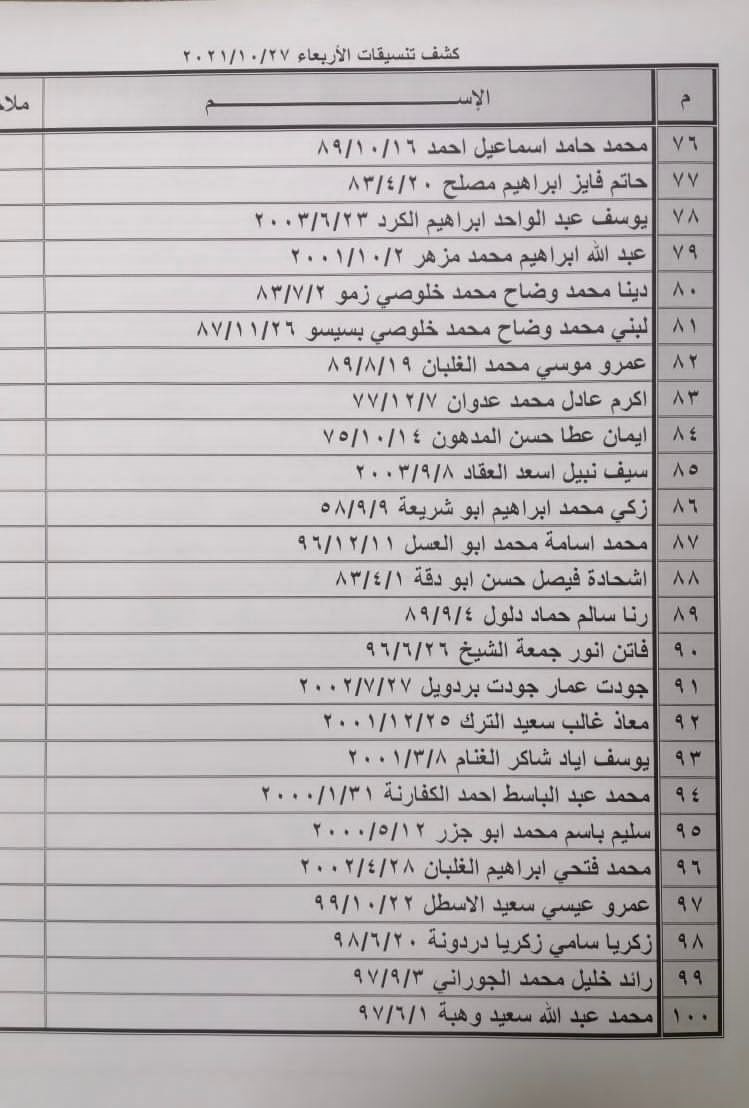 كشف تنسيقات الأربعاء ٢٠٢١/١٠/٢٧
م الإســــــــــــــــــــــــــم
٧٦ محمد حامد اسماعيل احمد ٨٩/١٠/١٦
٧٧ حاتم فايز ابراهيم مصلح ٨٣/٤/٢٠
٧٨ يوسف عبد الواحد ابراهيم الكرد ٢٠٠٣/٦/٢٣
٧٩ عبد الله ابراهيم محمد مزهر ٢٠٠١/١٠/٢
٨٠ دينا محمد وضاح محمد خلوصي زمو ٨٣/٧/٢
٨١ لبني محمد وضاح محمد خلوصي بسيسو ٨٧/١١/٢٦
٨٢ عمرو موسي محمد الغلبان ٨٩/٨/١٩
٨٣ اكرم عادل محمد عدوان ٧٧/١٢/٧
٨٤ ايمان عطا حسن المدهون ٧٥/١٠/١٤
٨٥ سيف نبيل اسعد العقاد ٢٠٠٣/٩/٨
٨٦ زكي محمد ابراهيم ابو شريعة ٥٨/٩/٩
٨٧ محمد اسامة محمد ابو العسل ٩٦/١٢/١١
٨٨ اشحادة فيصل حسن ابو دقة ٨٣/٤/١
٨٩ رنا سالم حماد دلول ٨٩/٩/٤
٩٠ فاتن انور جمعة الشيخ ٩٦/٦/٢٦
٩١ جودت عمار جودت بردويل ٢٠٠٢/٧/٢٧
٩٢ معاذ غالب سعيد الترك ٢٠٠١/١٢/٢٥
٩٣ يوسف اياد شاكر الغنام ٢٠٠١/٣/٨
٩٤ محمد عبد الباسط احمد الكفارنة ٢٠٠٠/١/٣١
٩٥ سليم باسم محمد ابو جزر ٢٠٠٠/٥/١٢
٩٦ محمد فتحي ابراهيم الغلبان ٢٠٠٢/٤/٢٨
٩٧ عمرو عيسي سعيد الاسطل ٩٩/١٠/٢٢
٩٨ زكريا سامي زكريا دردونة ٩٨/٦/٢٠
٩٩ رائد خليل محمد الجوراني ٩٧/٩/٣
١٠٠ محمد عبد الله سعيد وهبة ٩٧/٦/١